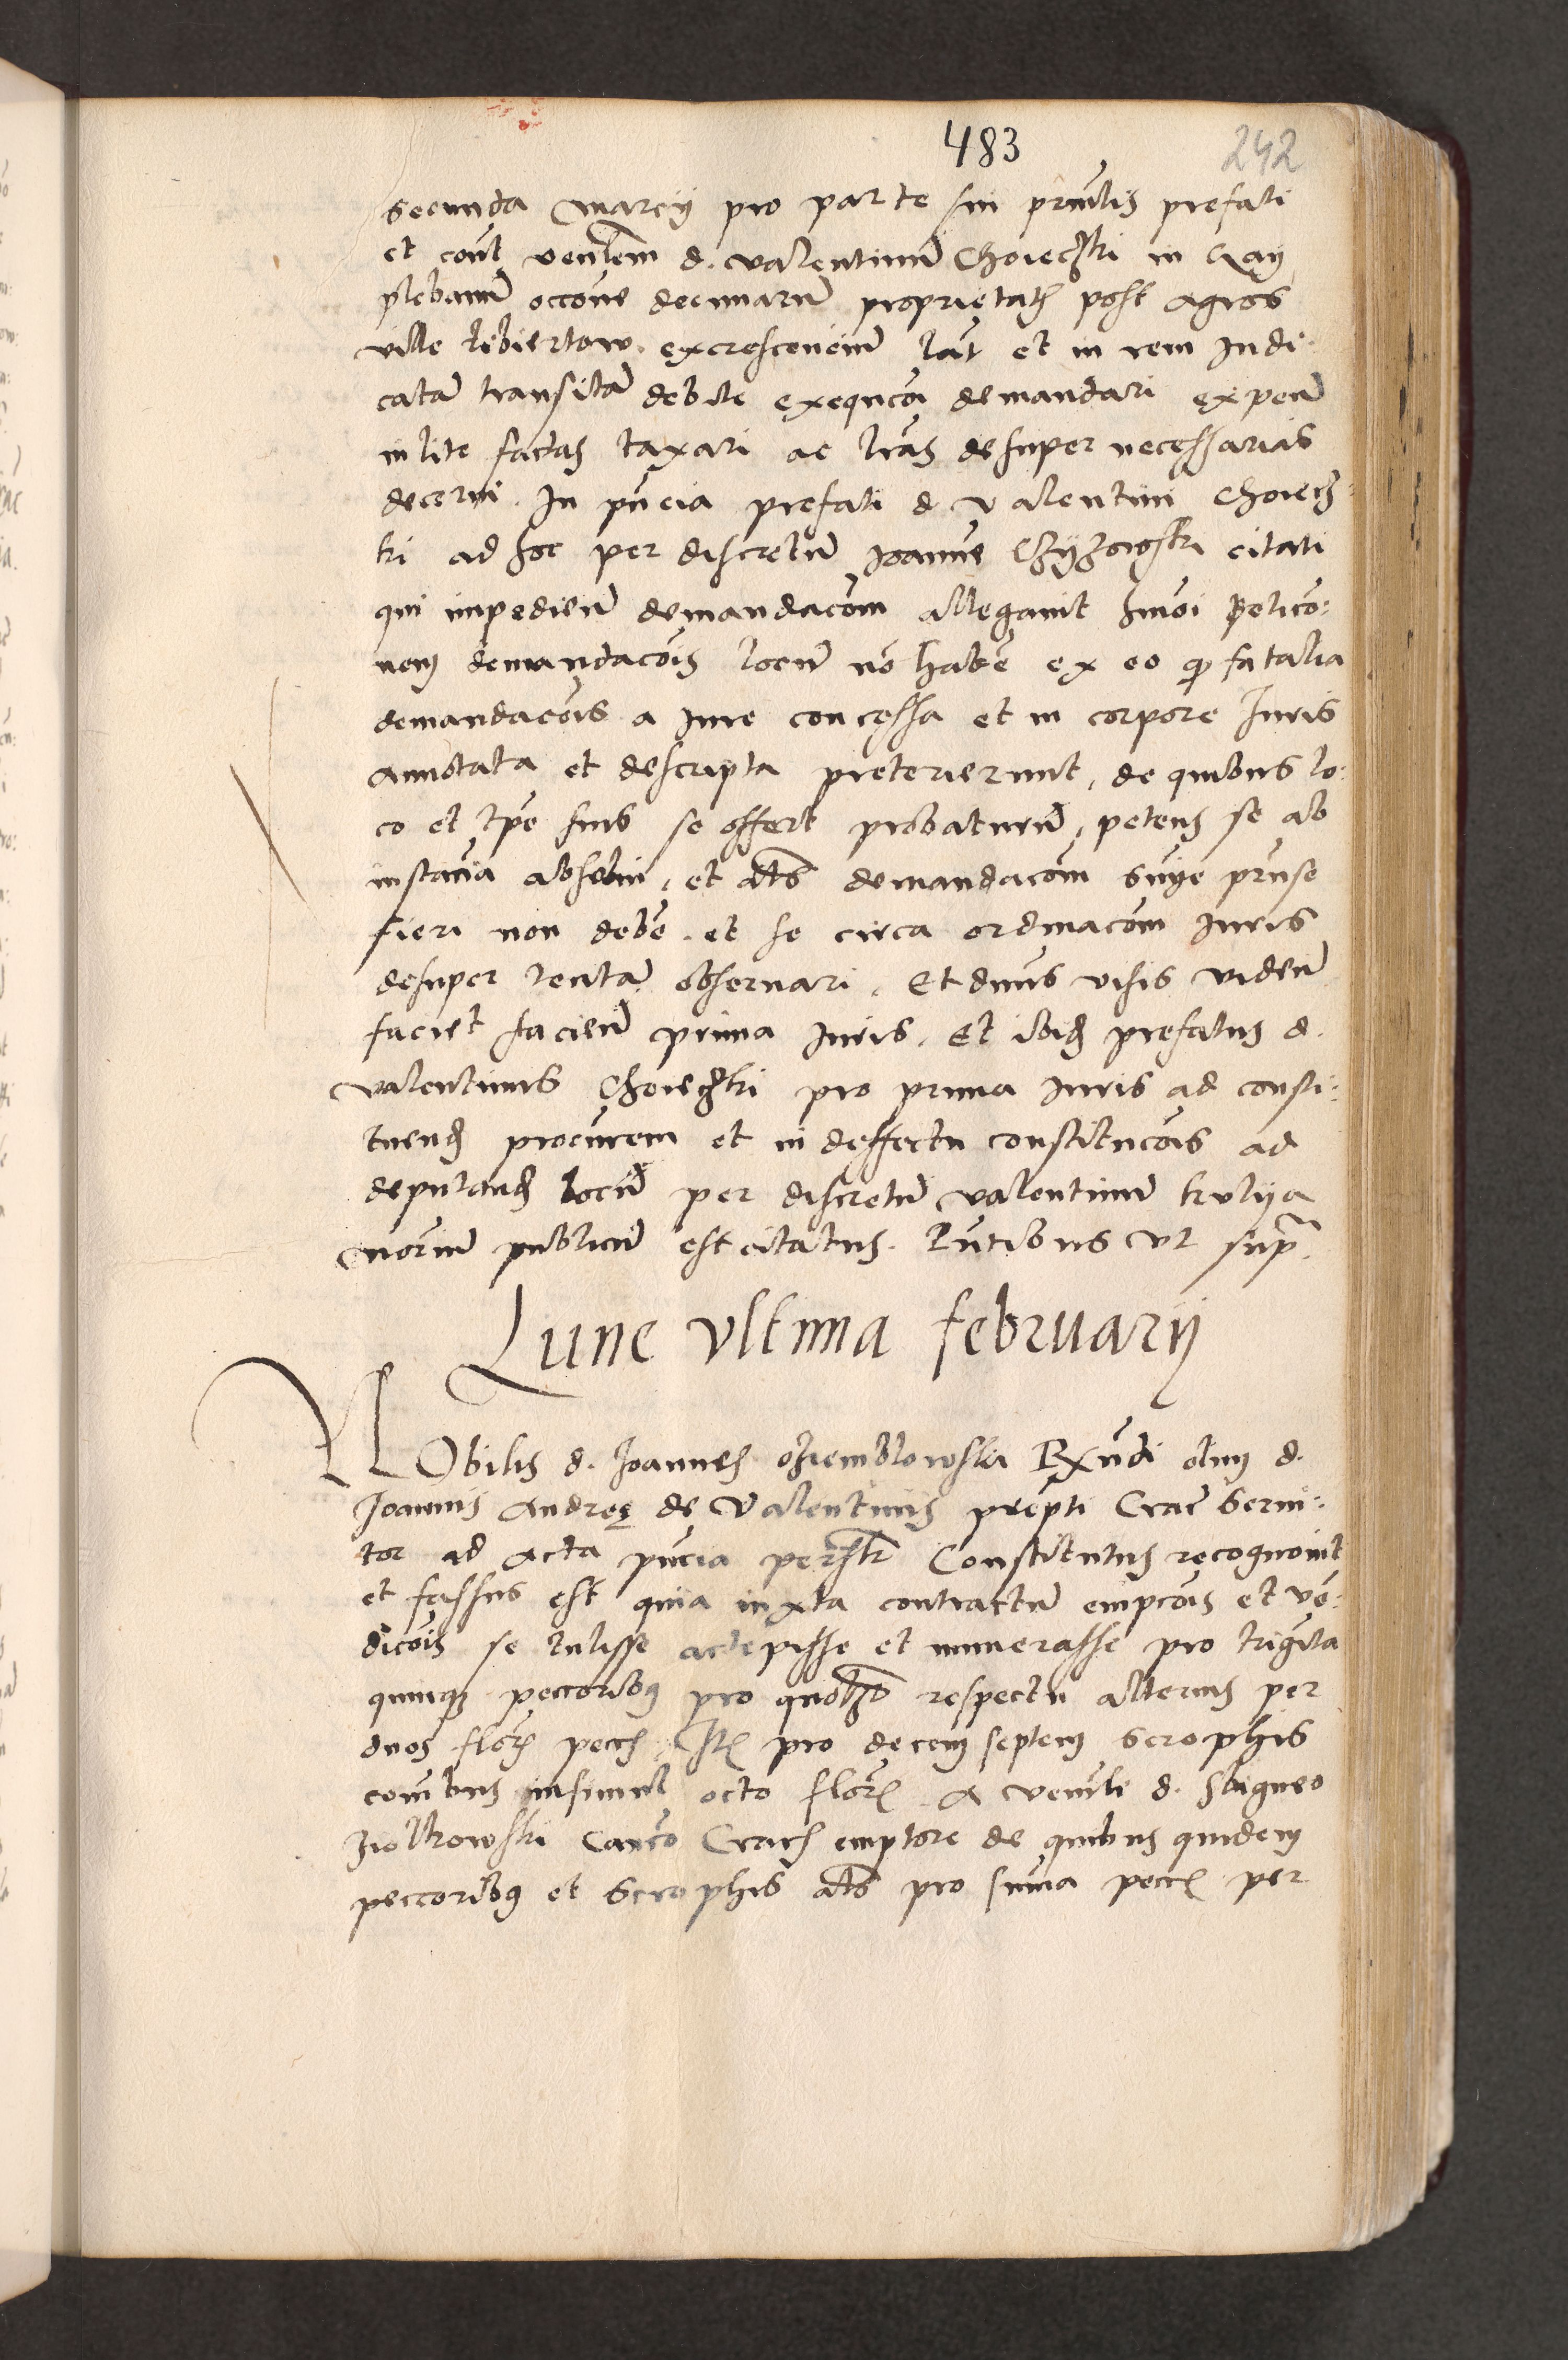 483
242
secunda Marcij pro parte sui prīnalis prefati
et coñt ven̄lem d. valentinū Chorecz̄ki in Gay
plebanū occōne decimarū proprietatis post agros
ville libiertow excrescenciū latā et in rem Iudi:
catā transitā debite exequcōi demandari expeñ
in lite factas taxari ac lrās desuper necessarias
decerni. In p̄ncia prefati d valentini Chorecz:
ki ad hoc per discretū Joannē Czyżowski citati
qui impedieñ demandacōm allegauit hmōi peticō:
nem demandacōis locū nō habēre ex eo ꝙ fatalia
demandacōis a iure concessa et in corpore Iuris
annotata et descripta preterierunt, de quibus lo:
co et tp̄e suis se offert probaturū, petens se ab
instan̄cia absolui, et als̄ demandacōm sn̄ie prn̄se
fieri non debēre et se circa ordinacōm Iuris
desuper tentā obseruari. Et dn̄us visis videñ
faciet facieñ prima Iuris. Et ibidem prefatus d.
valentinus Chorecz̄ki pro prima Iuris ad consti:
tuendum procur̄em et in deffectu constitucōis ad
deputandum locū per discretū valentinū kulija
notriū publicū est citatus. Pn̄tibus vt supra
Lune vltima februarij
NObilis d. Joannes oziemblowski Rxn̄di olim d.
Joannis Andreę de Valentinis prep̄ti Crac̄ serui:
tor ad acta p̄ncia personalr̄ Constitutus recognouit
et fassus est quia iuxta contractū empcōis et ven̄:
dicōis se tulisse accepisse et numerasse pro trigīta
quinque peccoribus pro quolibet respectu alterius per
duos floren̄ pecc̄ Itē pro decem septem scrophis
coīnibus insimul octo floren̄ a ven̄li d. Sbigneo
ziolkowski Can̄co Crac̄ emptore de quibus quidem
peccoribus et scrophis als̄ pro sum̄a pecc̄ per